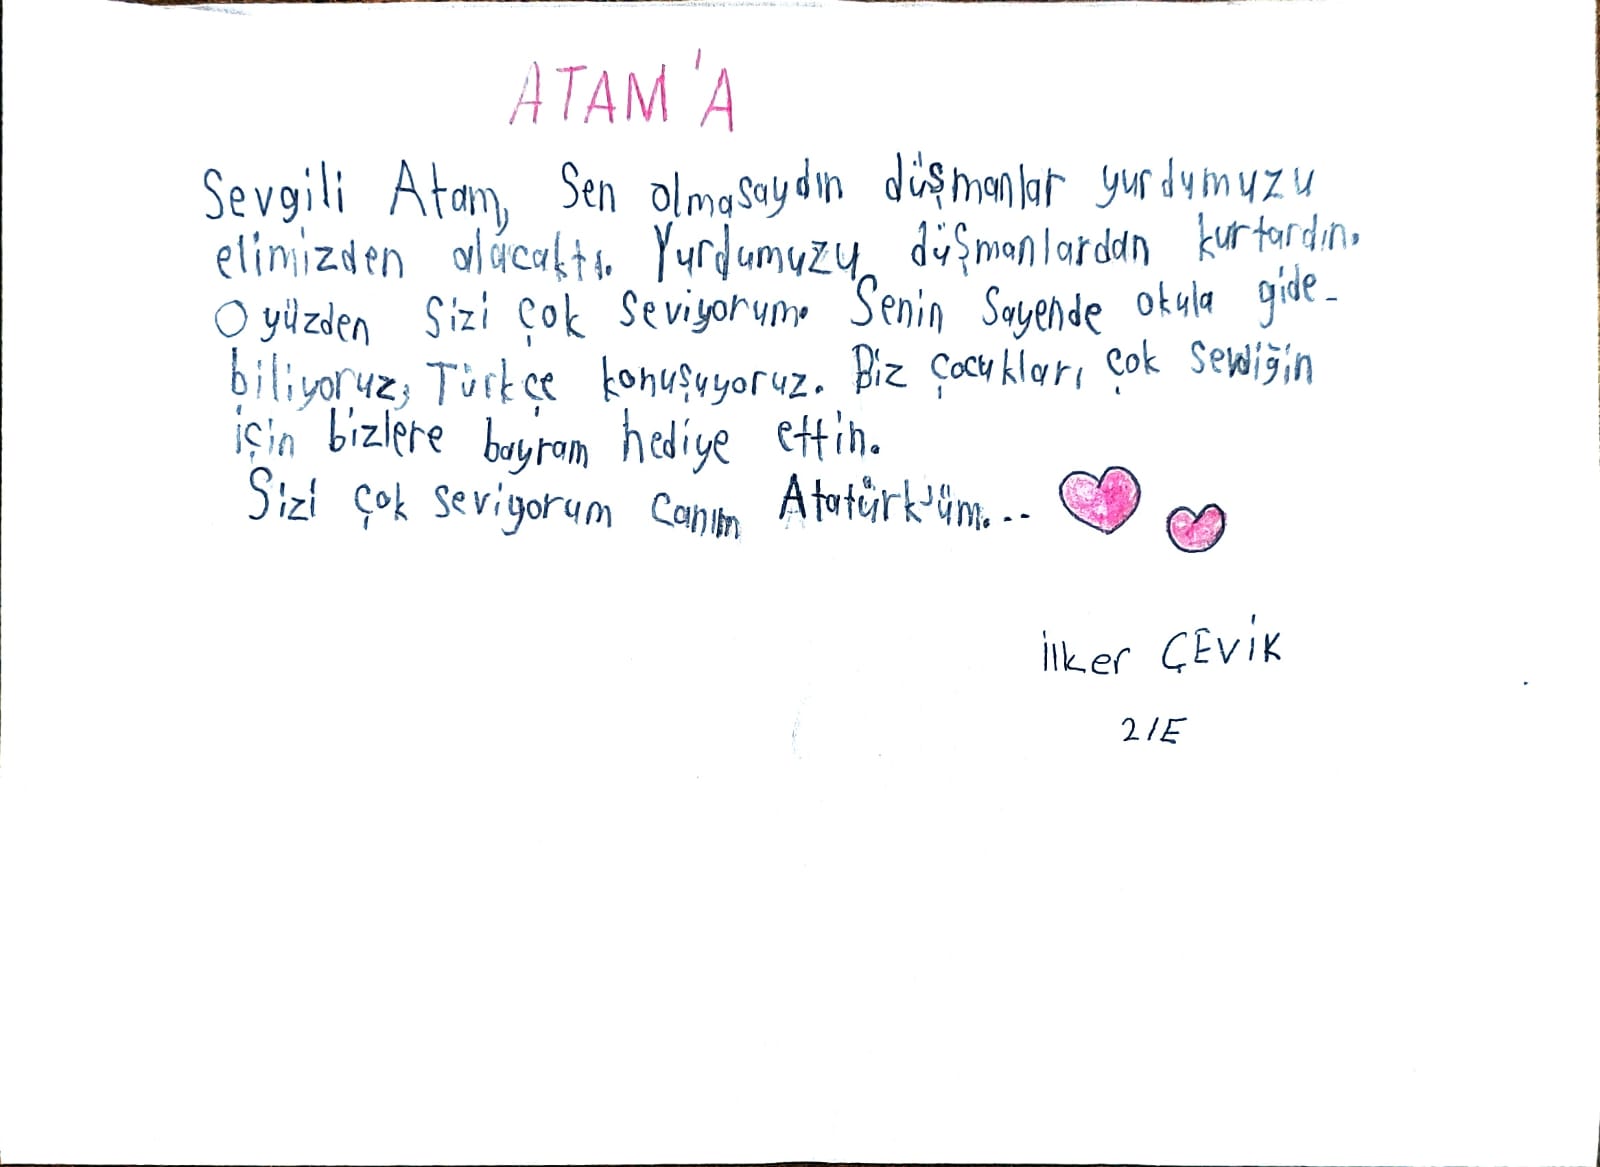 ATAM'A
Sevgili Atam, Sen olmasaydın düşmanlar yurdumuzu
elimizden alacaktı. Yurdumuzu düşmanlardan kurtardın.
O yüzden Sizi çok seviyorum. Senin Sayende okula gide-
biliyoruz, Türkçe konuşuyoruz. Biz çocukları çok sevdiğin
için bizlere bayram hediye ettin.
Sizi çok seviyorum canım Atatürk'üm...
İlker ÇEVİK
2/E